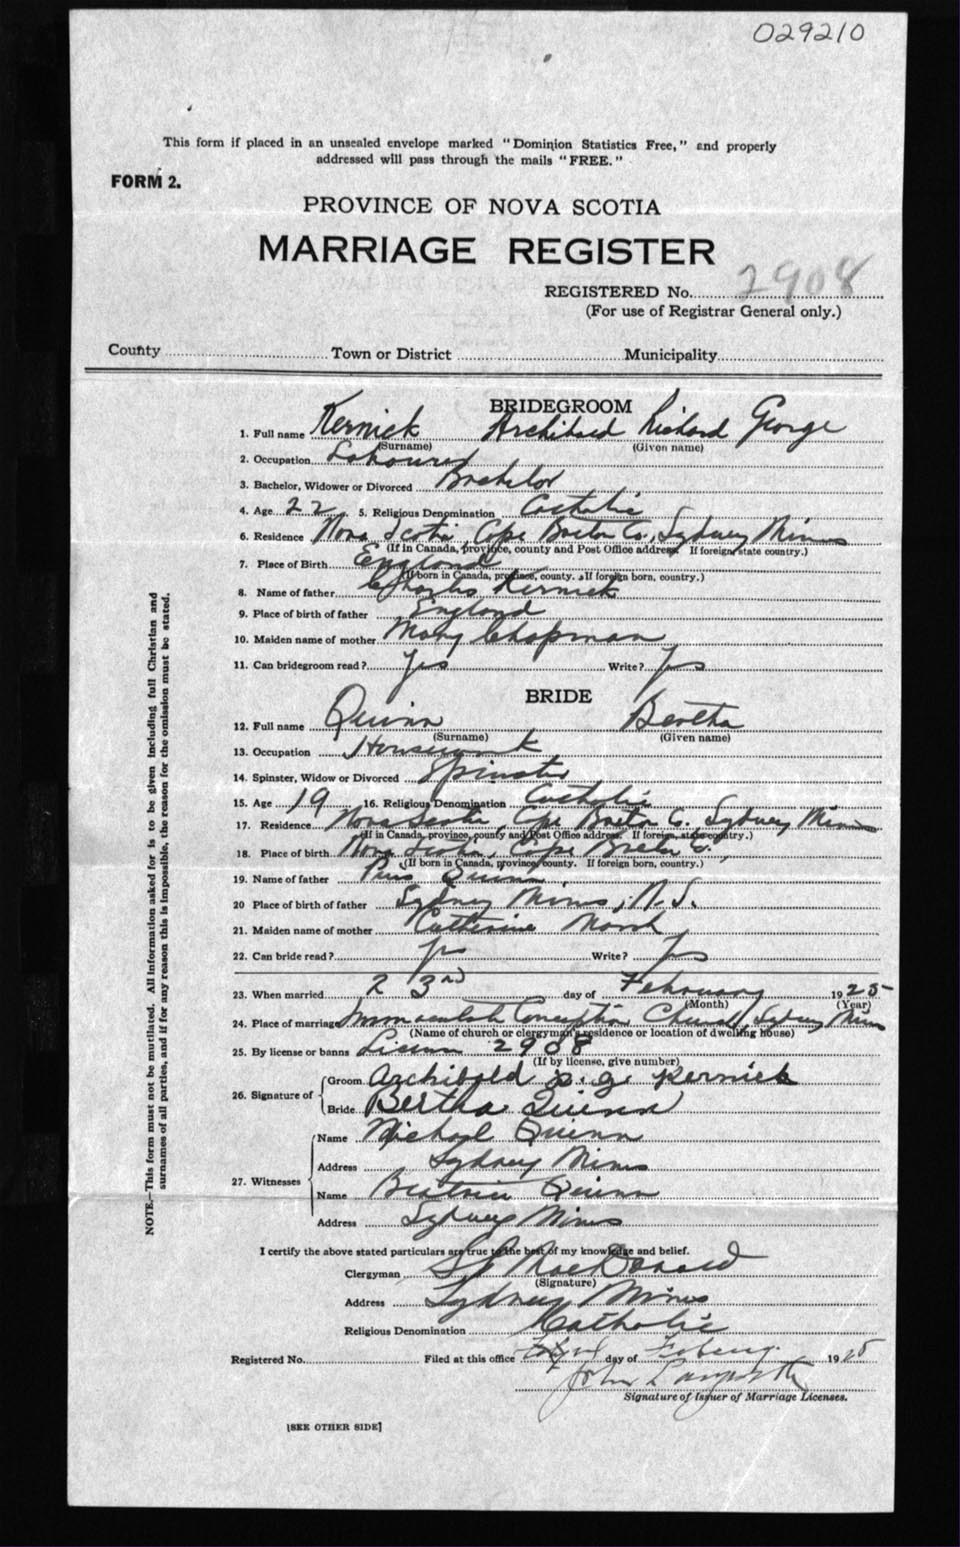 029210
This form if placed in an unsealed envelope marked "Dominion Statistics Free," and properly
addressed will pass through the mails "FREE."
FORM 2.
PROVINCE OF NOVA SCOTIA
MARRIAGE REGISTER
REGISTERED No. 2908
(For use of Registrar General only.)
County Town or District Municipality
BRIDEGROOM
1. Full name Kernick Archibald Richard George
(Surname) (Given name)
2. Occupation Labourer
3. Bachelor, Widower or Divorced Bachelor
4. Age 22 5. Religious Denomination Catholic
6. Residence Nova Scotia, Cape Breton Co., Sydney Mines
(If in Canada, province, county and Post Office address. If foreign state country.)
7. Place of Birth England
(If born in Canada, province, county. If foreign born, country.)
8. Name of father Charles Kernick
9. Place of birth of father England
10. Maiden name of mother Mary Chapman
11. Can bridegroom read? Yes Write? Yes
BRIDE
12. Full name Quinn Bertha
(Surname) (Given name)
13. Occupation Housework
14. Spinster, Widow or Divorced Spinster
15. Age 19 16. Religious Denomination Catholic
17. Residence Nova Scotia, Cape Breton Co. Sydney Mines
(If in Canada, province, county and Post Office address. If foreign, state country.)
18. Place of birth Nova Scotia, Cape Breton Co.,
(If born in Canada, province, county. If foreign born, country.)
19. Name of father Pius Quinn
20 Place of birth of father Sydney Mines, N.S.
21. Maiden name of mother Catherine
22. Can bride read? Yes Write? Yes
23. When married 23rd day of February 1925
(Month) (Year)
24. Place of marriage Immaculate Conception Church, Sydney Mines
(Name of church or clergyman's residence or location of dwelling house)
25. By license or banns License 2908
(If by license, give number)
26. Signature of Groom Archibald R. G. Kernick
Bride Bertha Quinn
27. Witnesses Name Michael Quinn
Address Sydney Mines
Name Beatrice Quinn
Address Sydney Mines
I certify the above stated particulars are true to the best of my knowledge and belief.
Clergyman MacDonald
(Signature)
Address Sydney Mines
Religious Denomination Catholic
Registered No. Filed at this office day of 1925
John
Signature of Issuer of Marriage Licenses.
[SEE OTHER SIDE]
NOTE.—This form must not be mutilated. All information asked for is to be given including full Christian and
surnames of all parties, and if for any reason this is impossible, the reason for the omission must be stated.